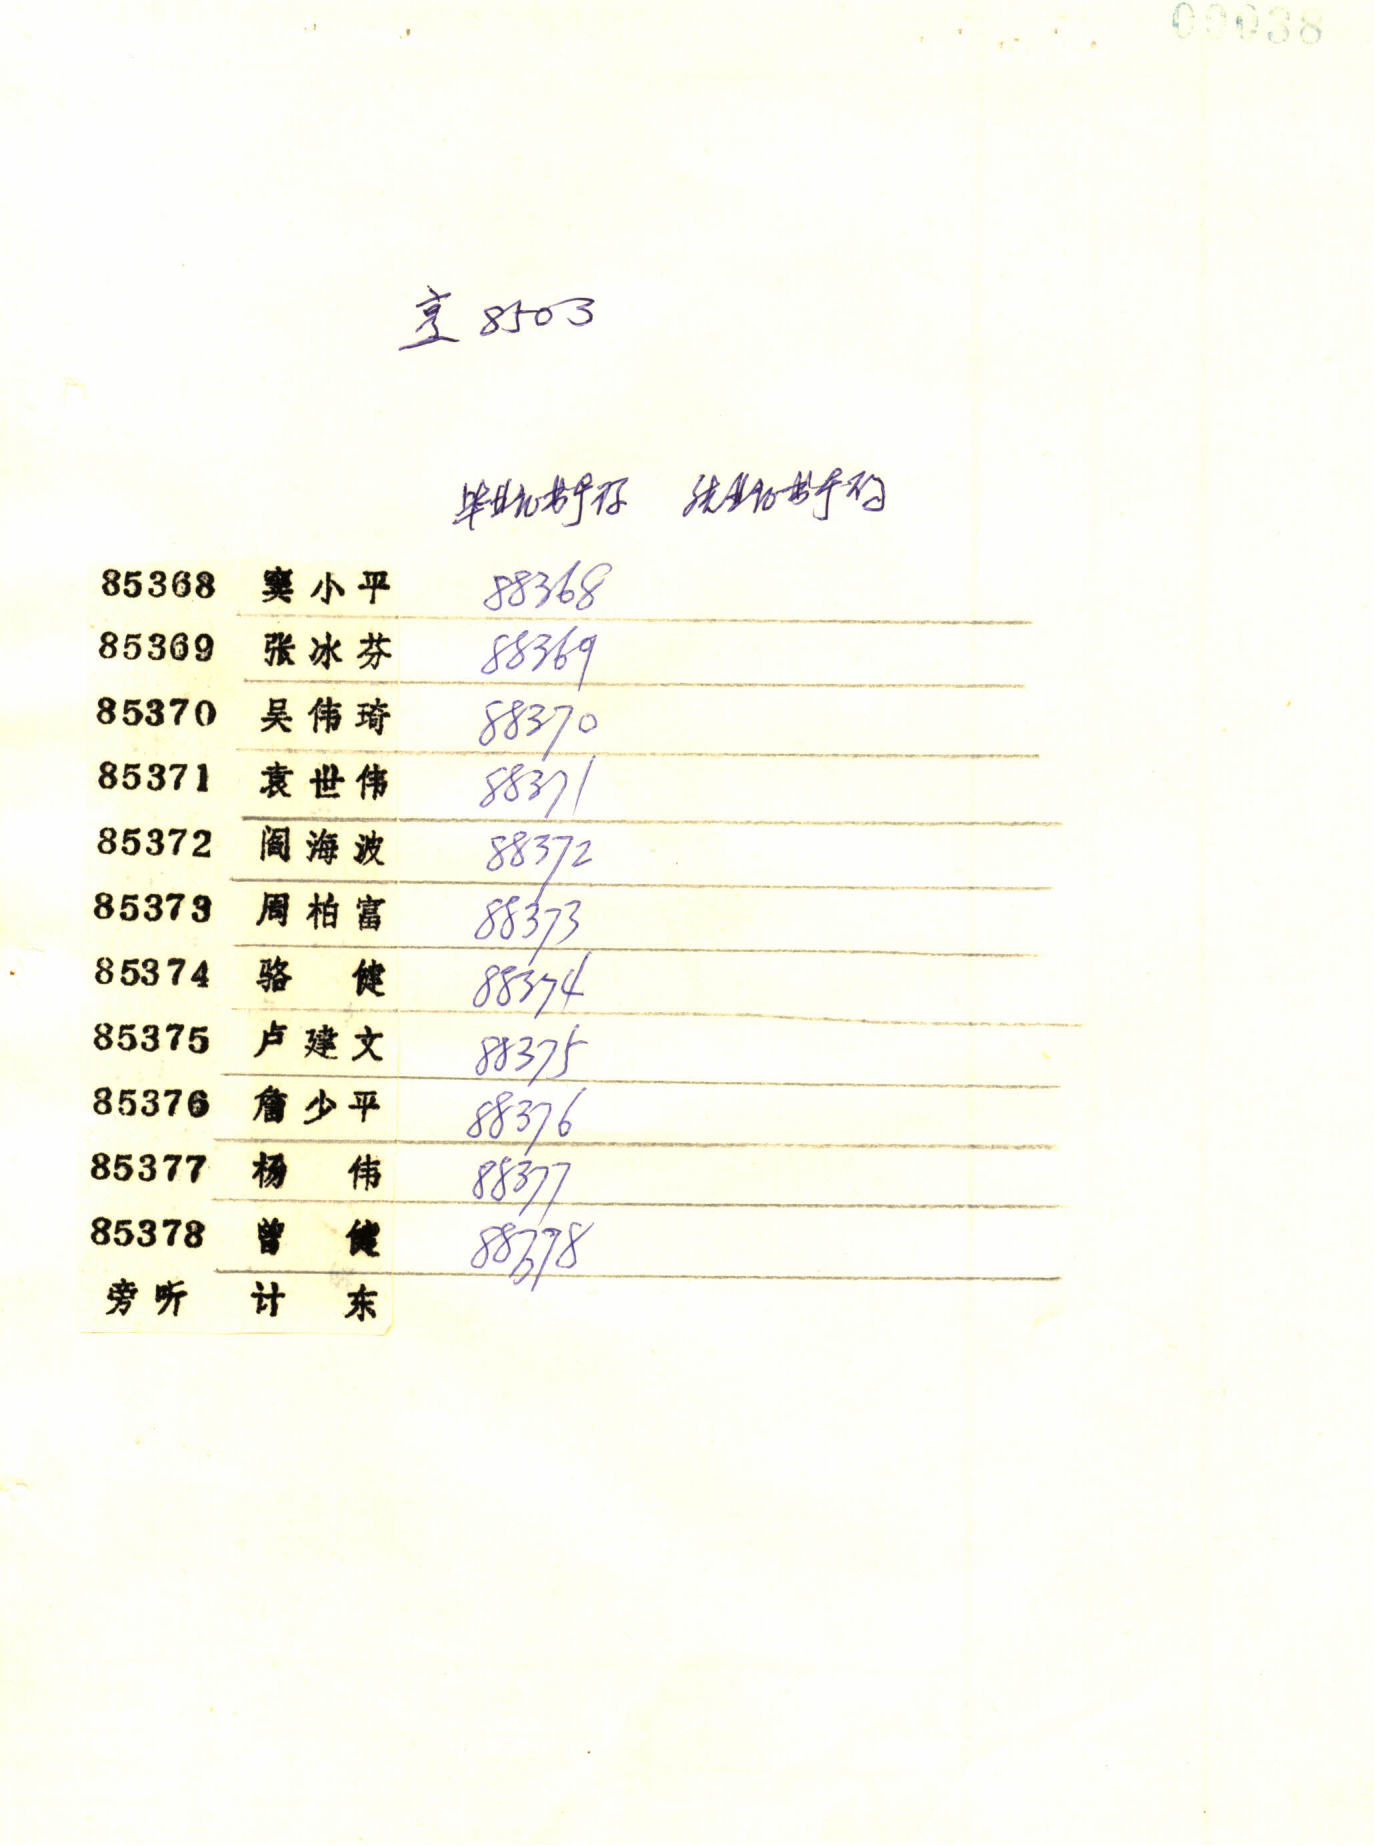 00038
8503
毕业证书号码 结业证书号码
85368 窦小平 88368
85369 张冰芬 88369
85370 吴伟琦 88370
85371 袁世伟 88371
85372 阎海波 88372
85373 周柏富 88373
85374 骆 健 88374
85375 卢建文 88375
85376 詹少平 88376
85377 杨 伟 88377
85378 曾 健 88378
旁听 计 东